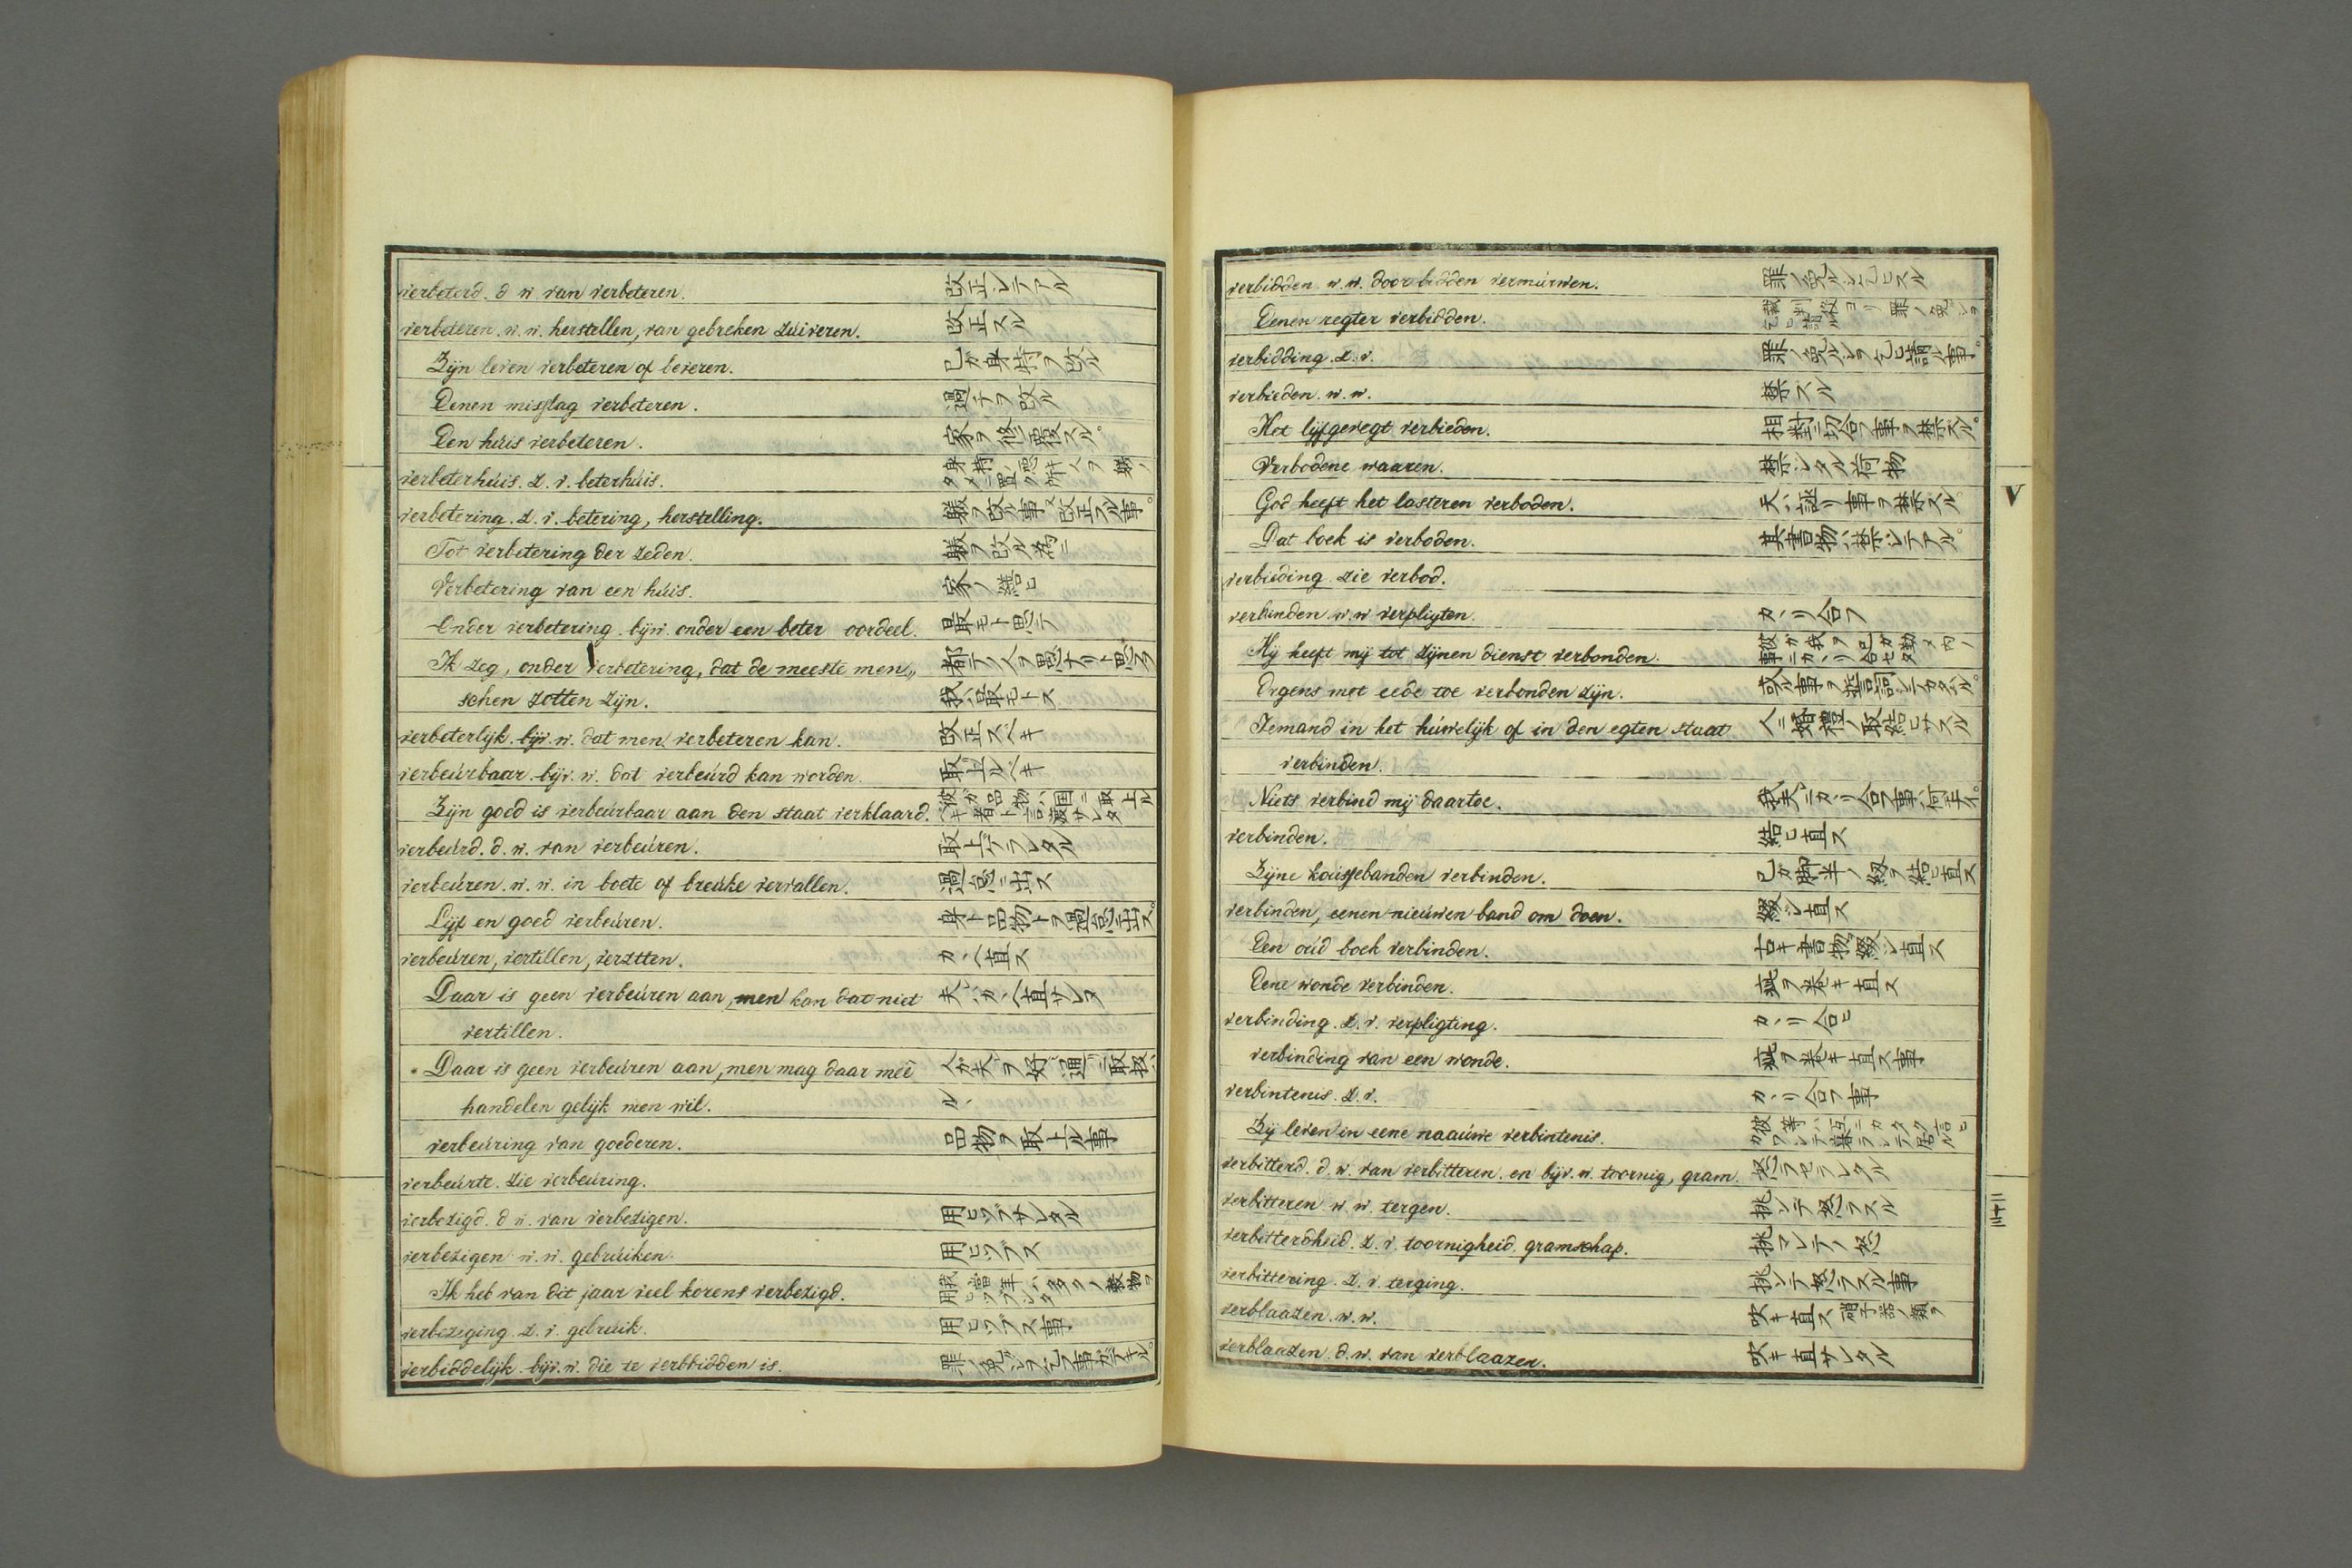 verbeterd. d w. van verbeteren. 改正シテアル
verbeteren. w. w. herstellen, van gebreken zuiveren. 改正スル
Zijn leven verbeteren of beteren. 己ガ身持ヲ改ル
Eenen misslag verbeteren. 過チヲ改ル
Een húis verbeteren. 家ヲ修覆スル。
verbeterhúis. z. v. beterhúis.
verbetering. z. v. betering, herstelling. 躾ヲ改ル事又改正スル事。
Tot verbetering der zeden. 躾ヲ改ル為ニ
Verbetering van een húis. 家ノ繕ヒ
Onder verbetering. bijw. onder een beter oordeel. 最モト思テ
Ik zeg, onder verbetering, dat de meeste men„ 都テノ人ヲ愚ナリト思フ
schen zotten zijn. 我ハ最モトス
verbeterlijk. bijv. w. dat men verbeteren kan. 改正スベキ
verbeúrbaar. bijv. w. dat verbeúrd kan worden. 取上ルベキ
Zijn goed is verbeúrbaar aan den staat verklaard. 彼ガ品物ハ国ニ取上ルベキ者ト言渡サレタ
verbeúrd. d. w. van verbeúren. 取上ゲラレタル
verbeúren. w. w. in boete of breúke vervallen. 過怠ニ出ス
Lijf en goed verbeúren. 身ト品物トヲ過怠ニ出ス。
verbeúren, vertillen, verztten. カヽヘ直ス
Daar is geen verbeúren aan, men kan dat niet 夫ハカヽヘ直サレヌ
vertillen.
Daar is geen verbeúren aan, men mag daar meê 人ガ夫ヲ好ミ通ニ取扱ハ
handelen gelijk men wil. ルヽ
verbeúring van goederen. 品物ヲ取上ル事
verbeúrte. zie verbeúring.
verbezigd. d w. van verbezigen. 用ヒツブサレタル
verbezigen w. w. gebrúiken. 用ヒツブス
Ik heb van dit jaar veel korens verbezigd. 我當年ハ多クノ穀物ヲ用ヒツブシタ
verbeziging. z. v. gebrúik. 用ヒツブス事
verbiddelijk. bijv. w. die te verbbidden is. 罪ノ免シヲ乞フ事ガデキル。
verbidden. w. w. door bidden vermúrwen. 罪ノ免ルシヲ乞ヒスル
Eenen regter verbidden.
verbidding. z. v. 罪ノ免ルシヲ乞ヒ請ル事。
verbieden. w. w. 禁スル
Het lijfgevegt verbieden. 相對ニ切合フ事ヲ禁スル。
Verbodene waaren. 禁シタル荷物
God heeft het lasteren verboden. 天ハ誣リ事ヲ禁スル
Dat boek is verboden. 其書物ハ禁シテアル。
verbieding zie verbod.
verbinden. w. w verpligten. カヽリ合フ
Hij heeft mij tot zijnen dienst verbonden. 彼ガ我ヲ己ガ勤メ向ノ事ニカヽリ合セタ
Ergens met eede toe verbonden zijn.
Iemand in het húwelijk of in den egten staat 人ニ婚禮ノ取結ヒサスル
verbinden.
Niets verbind mij daartoe. 我夫ニカヽリ合フ事ハ何モナイ。
verbinden. 結ヒ直ス
Zijne kousſebanden verbinden. 己ガ脚半ノ紐ヲ結ヒ直ス
verbinden, eenen nieúwen band om doen. 綴シ直ス
Een oúd boek verbinden. 古キ書物ヲ綴シ直ス
Eene wonde verbinden. 疵ヲ巻キ直ス
verbinding. z. v. verpligting. カヽリ合ヒ
verbinding van een wonde. 疵ヲ巻キ直ス事
verbintenis. z. v. カヽリ合フ事
Zij leven in eene naaúwe verbintenis.
verbitterd. d. w. van verbitteren. en bijv. w. toornig, gram. 怒ラセラレタル
verbitteren w. w. tergen. 挑ンテ怒ラスル
verbitterdheid. z. v. toornigheid. gramschap. 挑マレテノ怒
verbittering. z. v. terging. 挑ンテ怒ラスル事
verblaazen. w. w. 吹キ直ス 硝子器ノ類ヲ
verblaazen. d. w. van verblaazen. 吹キ直サレタル
V
三十二